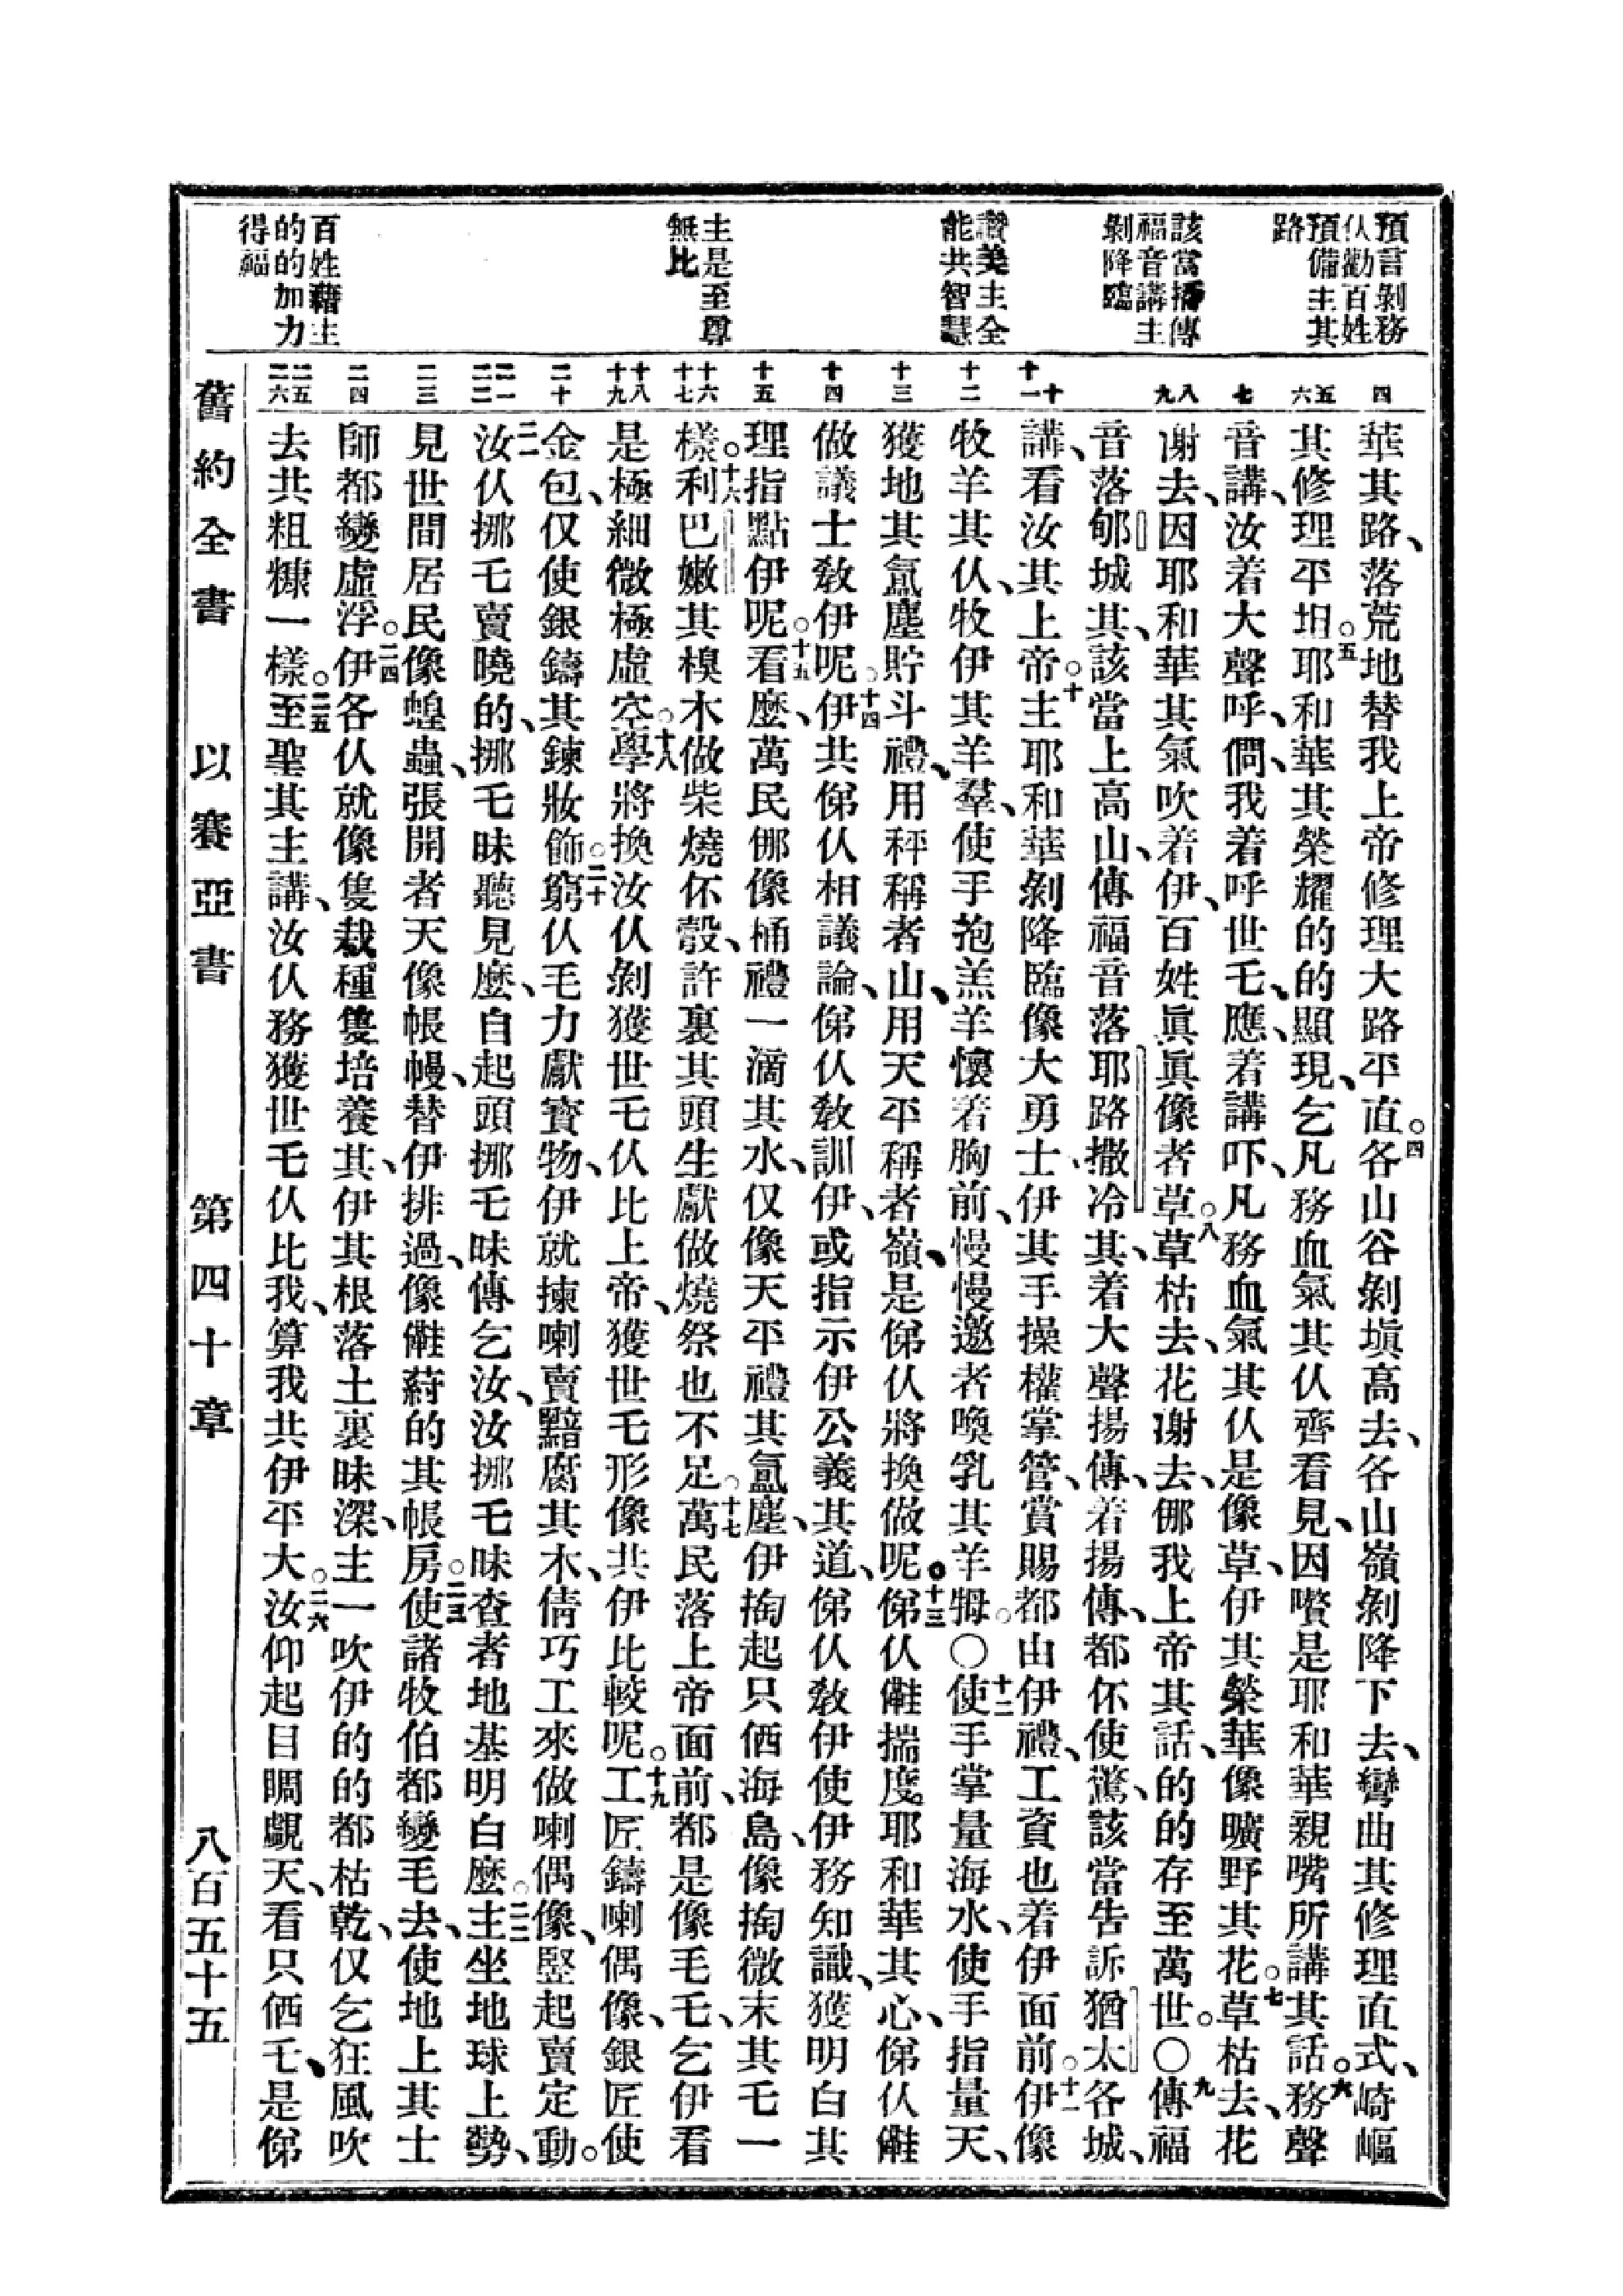 預言剝務
仈勸百姓
預備主其
路
該當播傳
福音講主
剝降臨
讚美主全
能共智慧
主是至尊
無比
百姓藉主
的的加力
得福
四
五
六
七
八
九
十
十一
十二
十三
十四
十五
十六
十七
十八
十九
二十
二一
二二
二三
二四
二五
二六
華其路、落荒地替我上帝修理大路平直。四各山谷剝塡高去、各山嶺剝降下去、彎曲其修理直式、崎嶇
其修理平坦。五耶和華其榮耀的的顯現、乞凡務血氣其仈齊看見、因嚽是耶和華親嘴所講其話。六務聲
音講、汝着大聲呼、儞我着呼世乇、應、着講吓、凡務血氣其仈是像草、伊其榮華像曠野其花。七草枯去、花
謝去、因耶和華其氣吹着伊、百姓眞眞像者草。八草枯去、花謝去、那我上帝其話、的的存至萬世。〇九傳福
音落郇城其、該當上高山、傳福音落耶路撒冷其、着大聲揚傳、着揚傳、都伓使驚、該當告訴猶太各城、
講、看汝其上帝。十主耶和華剝降臨像大勇士、伊其手操權掌管、賞賜都由伊禮、工資也着伊面前。十一伊像
牧羊其仈、牧伊其羊羣、使手抱羔羊懷着胸前、慢慢邀者喚乳其羊牳。〇十二使手掌量海水、使手指量天、
獲地其氲塵貯斗禮、用秤稱者山、用天平稱者嶺、是俤仈將換做呢。十三俤仈𣍐揣度耶和華其心、俤仈𣍐
做議士敎伊呢。十四伊共俤仈相議論、俤仈敎訓伊、或指示伊公義其道、俤仈敎伊使伊務知識、獲明白其
理指點伊呢。十五看麽、萬民那像桶禮一滴其水、仅像天平禮其氲塵、伊掏起只仾海島、像掏微末其乇一
樣。十六利巴嫩其樹木做柴燒伓彀、許裏其頭生獻做燒祭也不足。十七萬民落上帝面前、都是像毛乇、乞伊看
是極細微極虛空。十八學將換汝仈剝獲世乇仈比上帝、獲世乇形像共伊比較呢。十九工匠鑄喇偶像、銀匠使
金包、仅使銀鑄其鍊妝飾。二十窮仈毛力獻寶物、伊就揀喇賣黯腐其木、倩巧工來做喇偶像、竪起賣定動。
二一汝仈挪乇賣曉的、挪乇昧聽見麽、自起頭挪乇昧傳乞汝、汝挪乇昧查者地基明白麽。二二主坐地球上勢、
見世間居民像蝗蟲、張開者天像帳幔、替伊排過、像𣍐蔚的其帳房。二三使諸牧伯都變毛去、使地上其士
師都變虛浮。二四伊各仈就像隻栽種隻培養其、伊其根落土裏昧深、主一吹伊的的都枯乾、仅乞狂風吹
去共粗糠一樣。二五至聖其主講、汝仈務獲世乇仈比我、算我共伊平大。二六汝仰起目睭覷天、看只仾乇、是俤
舊約全書　以賽亞書　第四十章　八百五十五